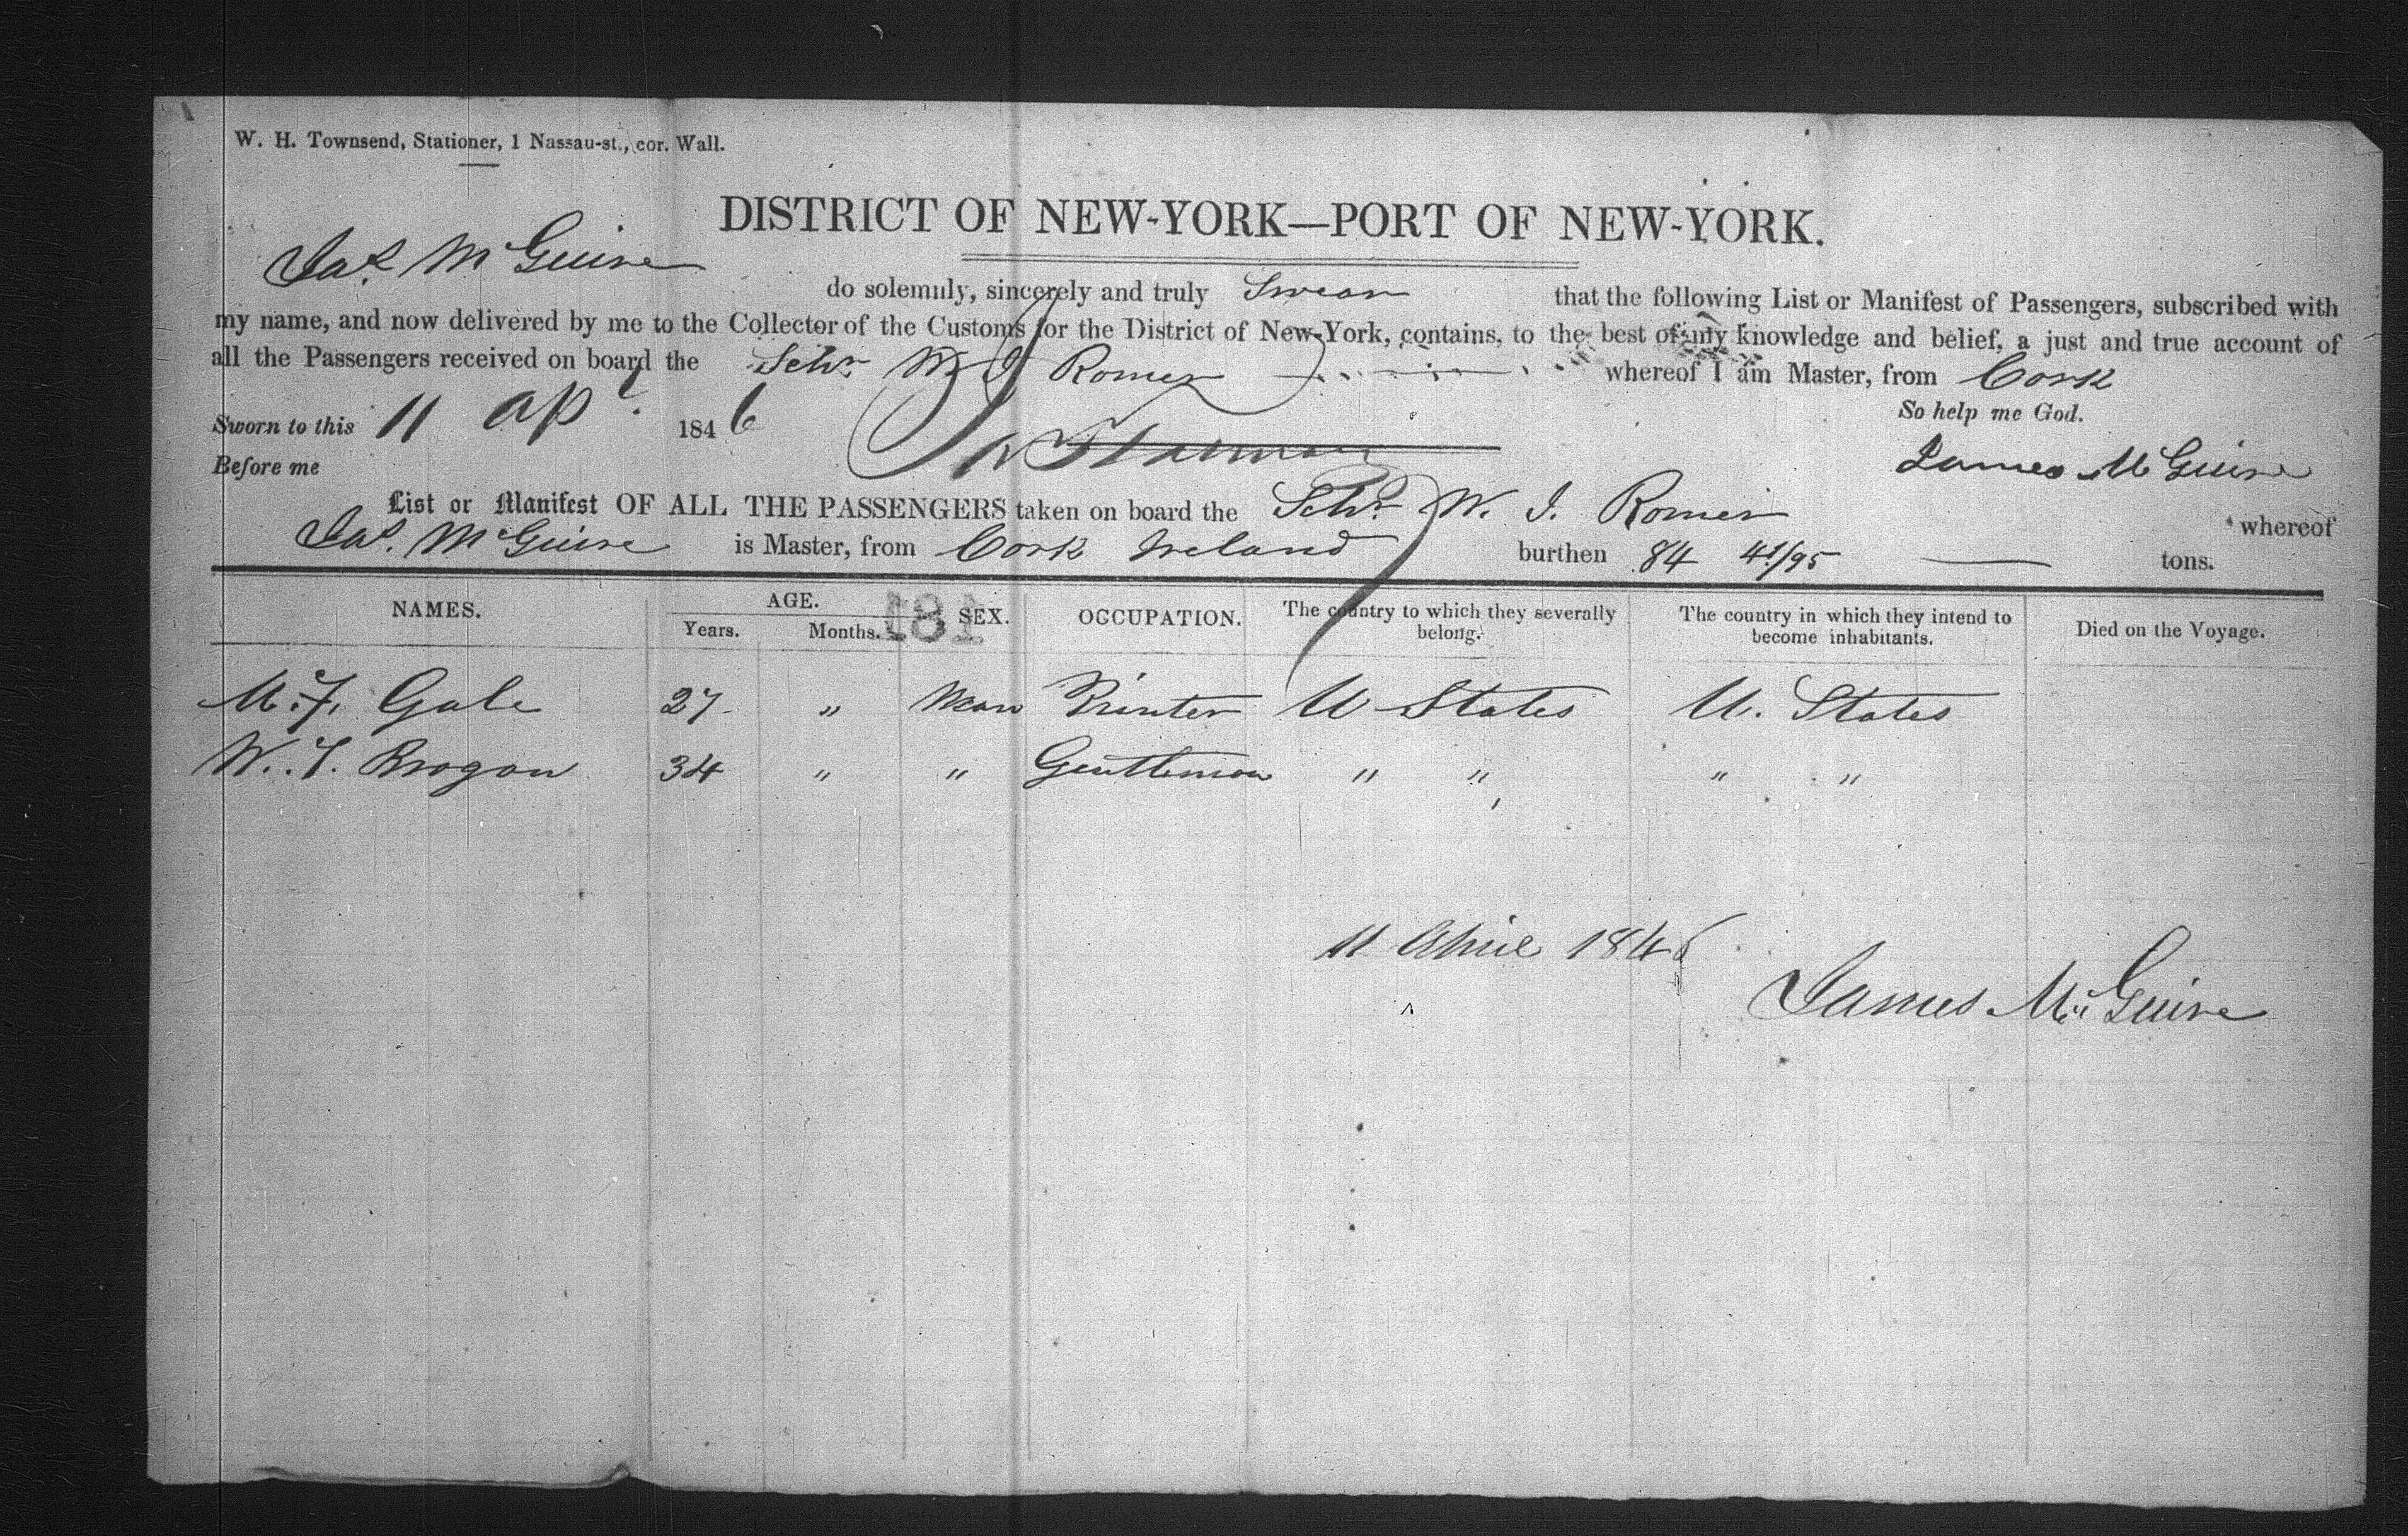 W. H. Townsend, Stationer, 1 Nassau-st., cor. Wall.
DISTRICT OF NEW-YORK—PORT OF NEW-YORK.
Jas. McGuire do solemnly, sincerely and truly Swear that the following List or Manifest of Passengers, subscribed with
my name, and now delivered by me to the Collector of the Customs for the District of New-York, contains, to the best of my knowledge and belief, a just and true account of
all the Passengers received on board the Schr. W J Romer whereof I am Master, from Cork
So help me God.
Sworn to this 11 Apl. 1846
James McGuire
Before me
List or Manifest OF ALL THE PASSENGERS taken on board the Schr. W. J. Romer whereof
Jas. McGuire is Master, from Cork Ireland burthen 84 41/95 tons.
NAMES. AGE. Years. Months. SEX. OCCUPATION. The country to which they severally belong. The country in which they intend to become inhabitants. Died on the Voyage.
181
M. F. Gale 27 " Man Printer U States U. States
W. T. Brogan 34 " " Gentleman " " " "
11 April 1846
James McGuire